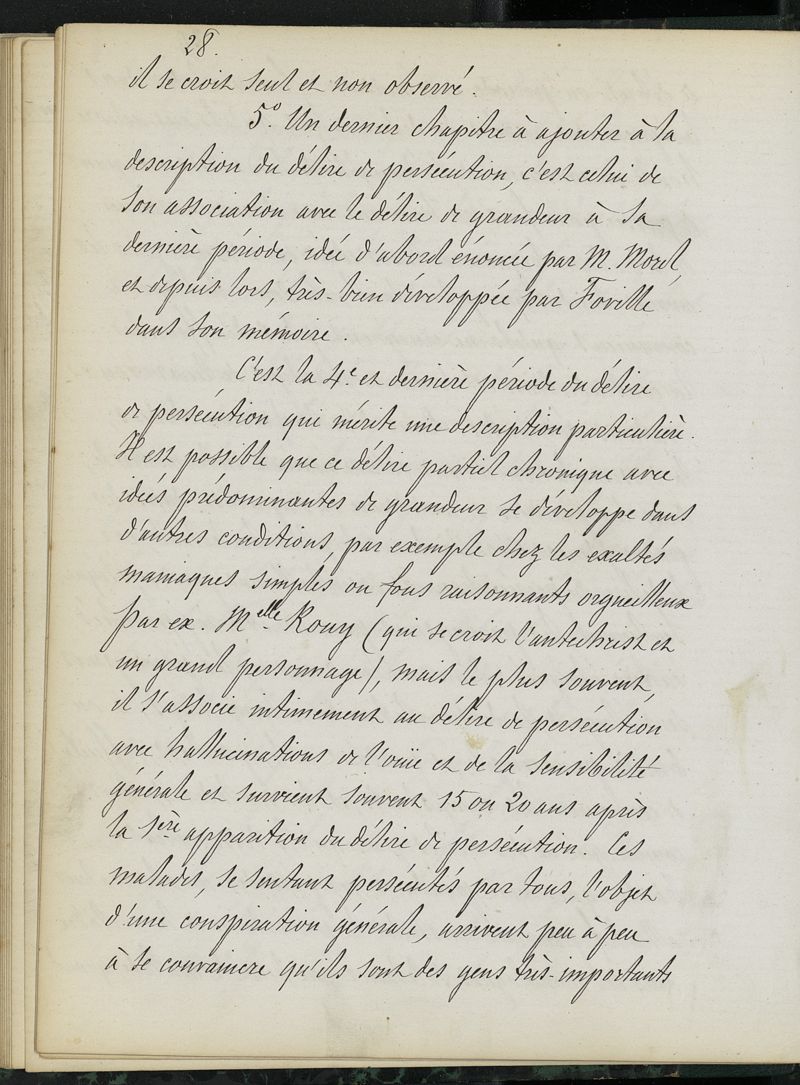 28.
il se croit seul et non observé.
5°. Un dernier chapitre à ajouter à la
description du délire de persécution, c'est celui de
son association avec le délire de grandeur à sa
dernière période, idée d'abord énoncée par M. Morel,
et depuis lors, très-bien développée par Foville
dans son mémoire.
C'est la 4e et dernière période du délire
de persécution qui mérite une description particulière.
Il est possible que ce délire partiel chronique avec
idées prédominantes de grandeur se développe dans
d'autres conditions, par exemple chez les exaltés
maniaques simples ou fous raisonnants orgueilleux
par ex. Melle Rouy (qui se croit l'antechrist et
un grand personnage), mais le plus souvent,
il s'associe intimement au délire de persécution
avec hallucinations de l'ouïe et de la sensibilité
générale et survient souvent 15 ou 20 ans après
la 1ère apparition du délire de persécution. Ces
malades, se sentant persécutés par tous, l'objet
d'une conspiration générale, arrivent peu à peu
à se convaincre qu'ils sont des gens très-importants